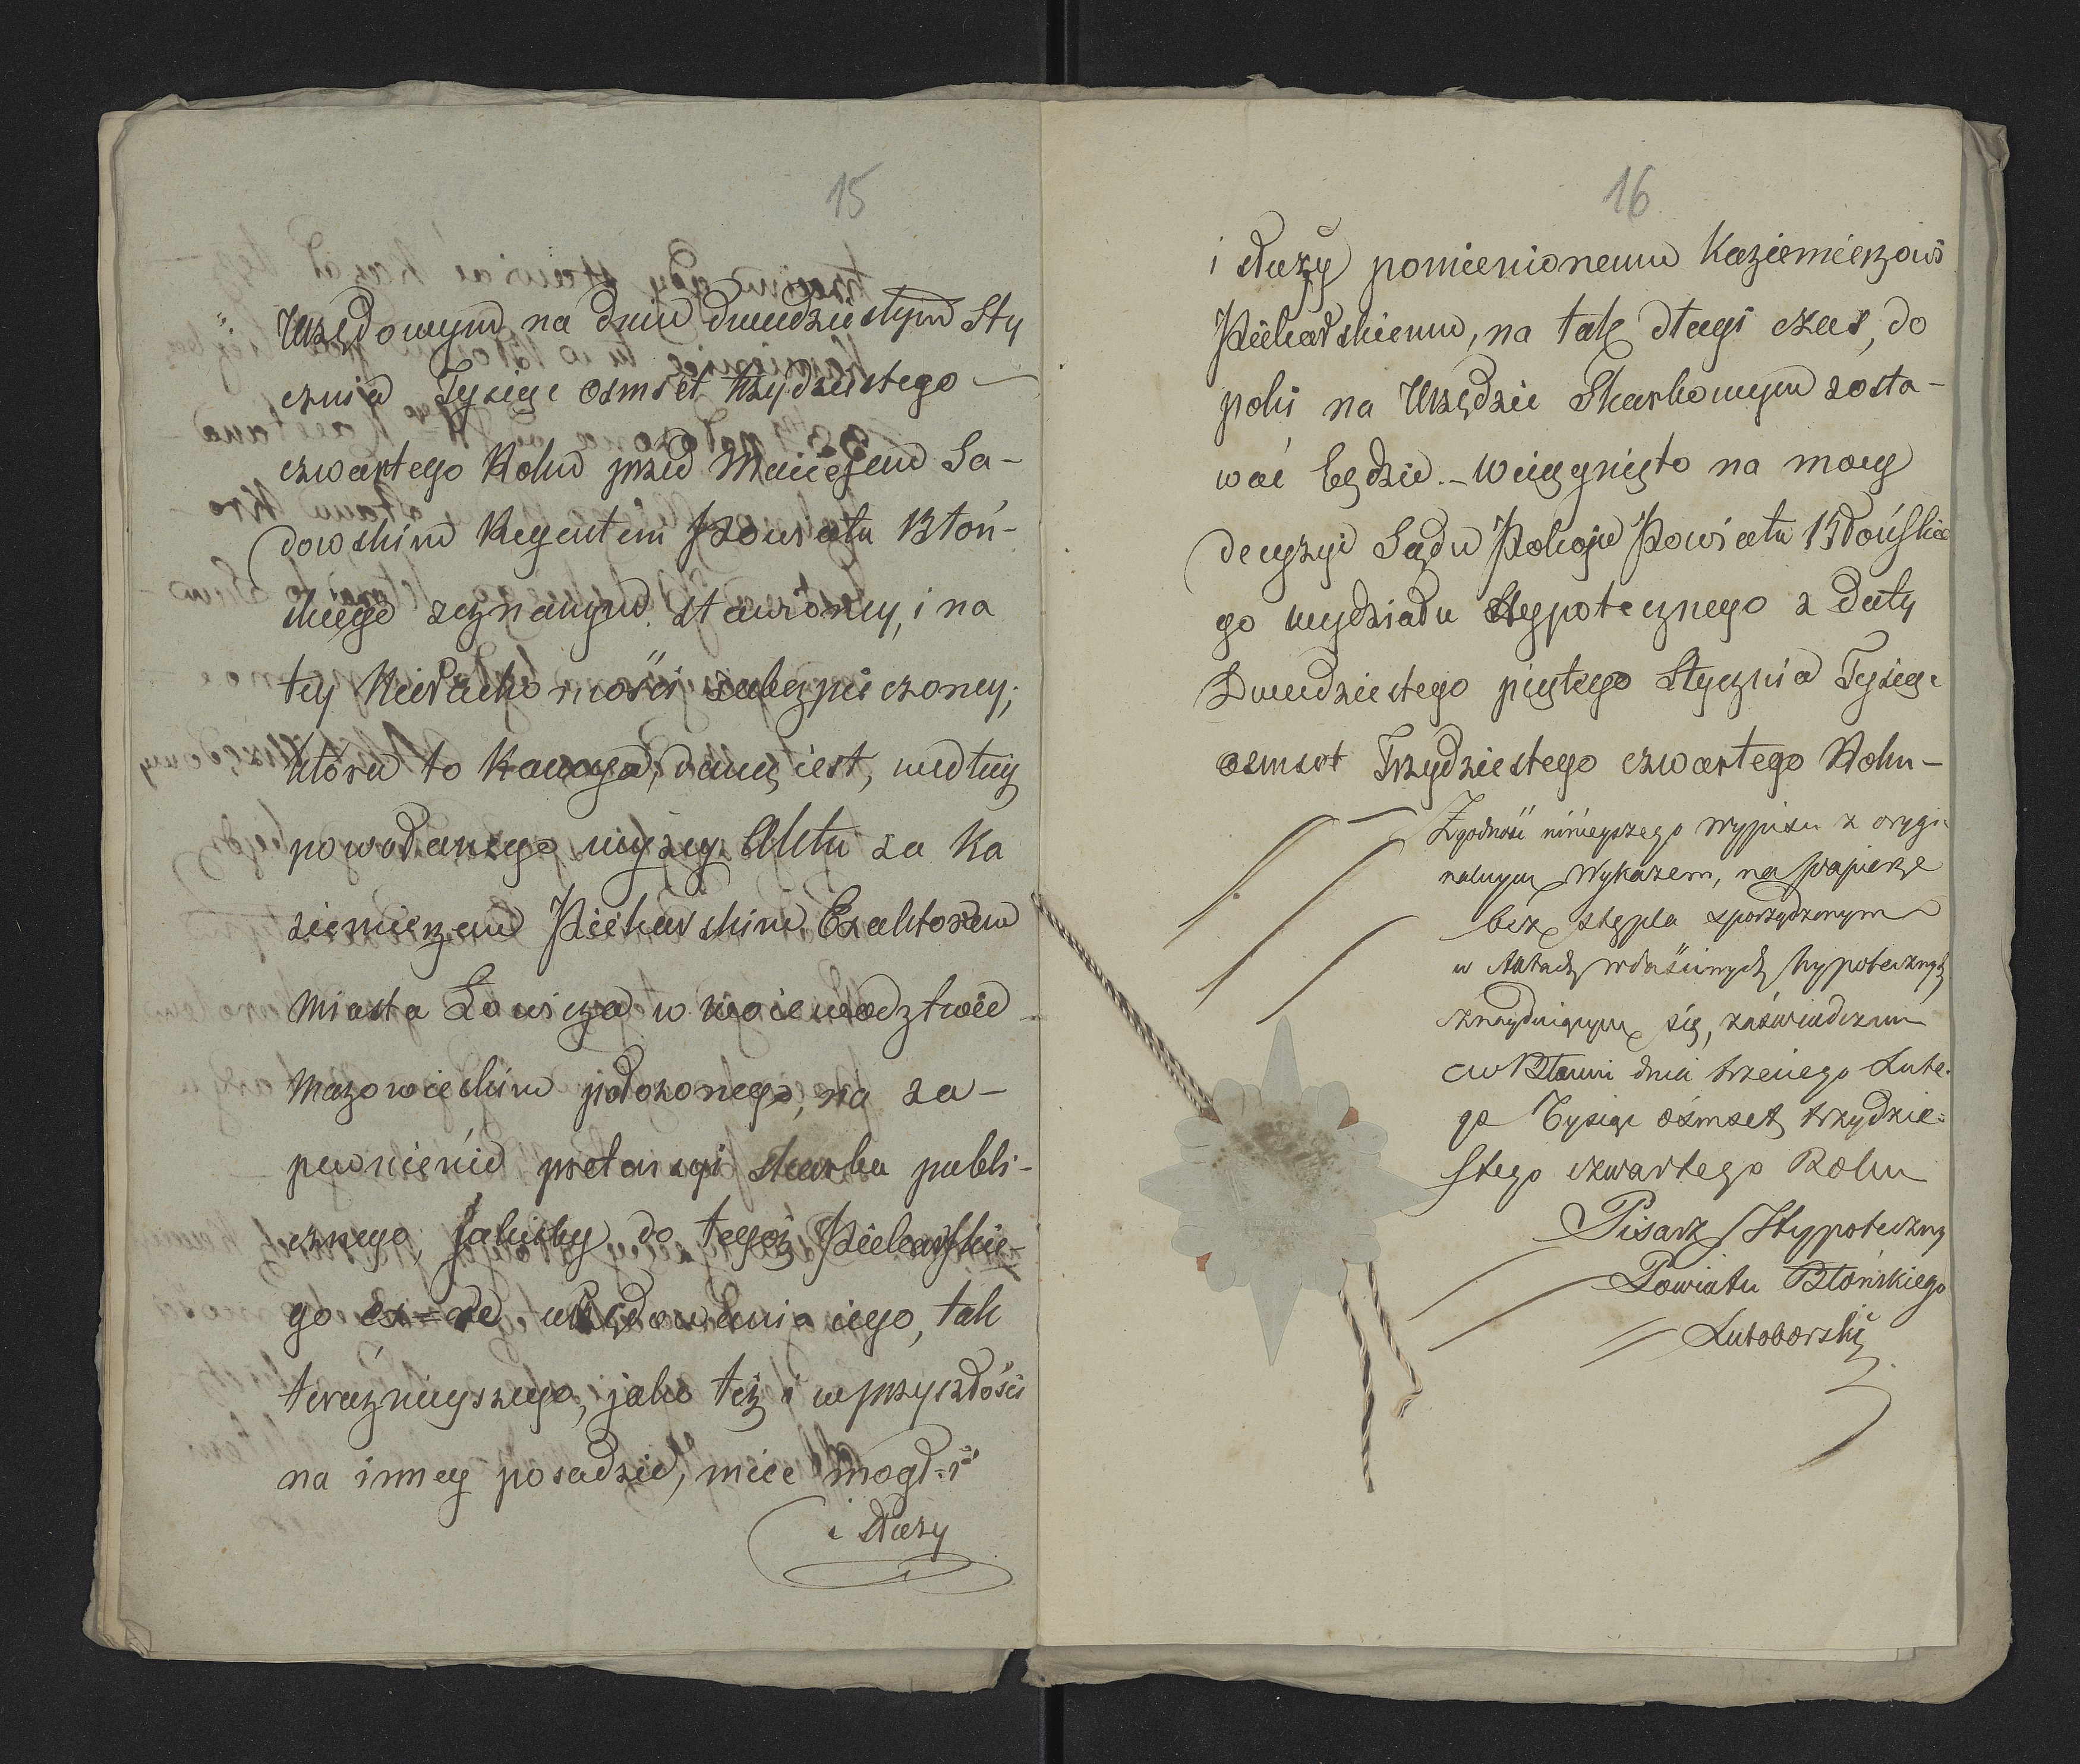 15
Urzędowym na dniu dwudziestym Sty
cznia Tysiąc osmset trzydziestego
czwartego Roku przed Maciejem Sa-
dowskim Regentem Powiatu Błoń-
skiego zeznanym stawioney, i na
tey Nieruchomości zabezpieczoney;
która to Kaucya, daną iest, według
powołanego wyżey Aktu za Ka
zimierzem Piekarskim Exaktorem
Miasta Łowicza w Woiewodztwie
Mazowieckim położonego, na za-
pewnienie pretensyi skarbu publi-
cznego, jakieby do tegoż Piekarskie-
go ex-re urzędowania iego, tak
teraznieyszego, jako też i w przyszłości
na inney posadzie, miec mogł i
i służy
16
i służy pomienionemu Kazimierzowi
Piekarskiemu, na tak długi czas, do
poki na Urzędzie Skarbowym zosta-
wać będzie. - Wciągnięto na mocy
decyzyi Sądu Pokoju Powiatu Błońskie
go wydziału Hypotecznego z daty
Dwudziestego piątego Stycznia Tysiąc
osmset Trzydziestego czwartego Roku -
Zgodność ninieyszego wypisu z orygi
nalnym Wykazem, na papierze
bez stępla sporządzonym
w Aktach właściwych hypotecznych
znayduiącym się, zaświadczam
w Błoniu dnia trzeciego Lute-
go Tysiąc ośmset trzydzie-
stego czwartego Roku
Pisarz Hypoteczny
Powiatu Błońskiego
Lutoborski